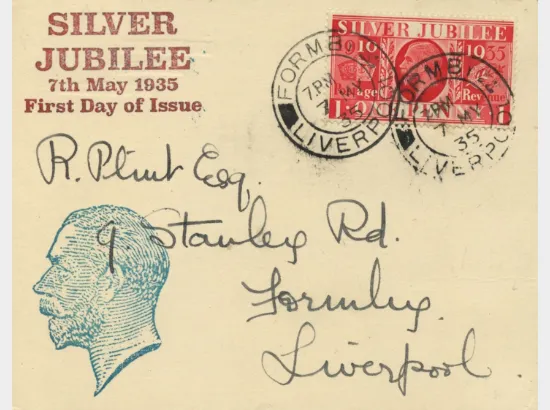 SILVER
JUBILEE
7th May 1935
First Day of Issue
SILVER JUBILEE
19 1935
Revenue
FORMBY
7 PM
7 MY
35
LIVERPOOL
FORMBY
7 PM
7 MY
35
LIVERPO
R. Plint Esq.
9, Stanley Rd.
Formby.
Liverpool.